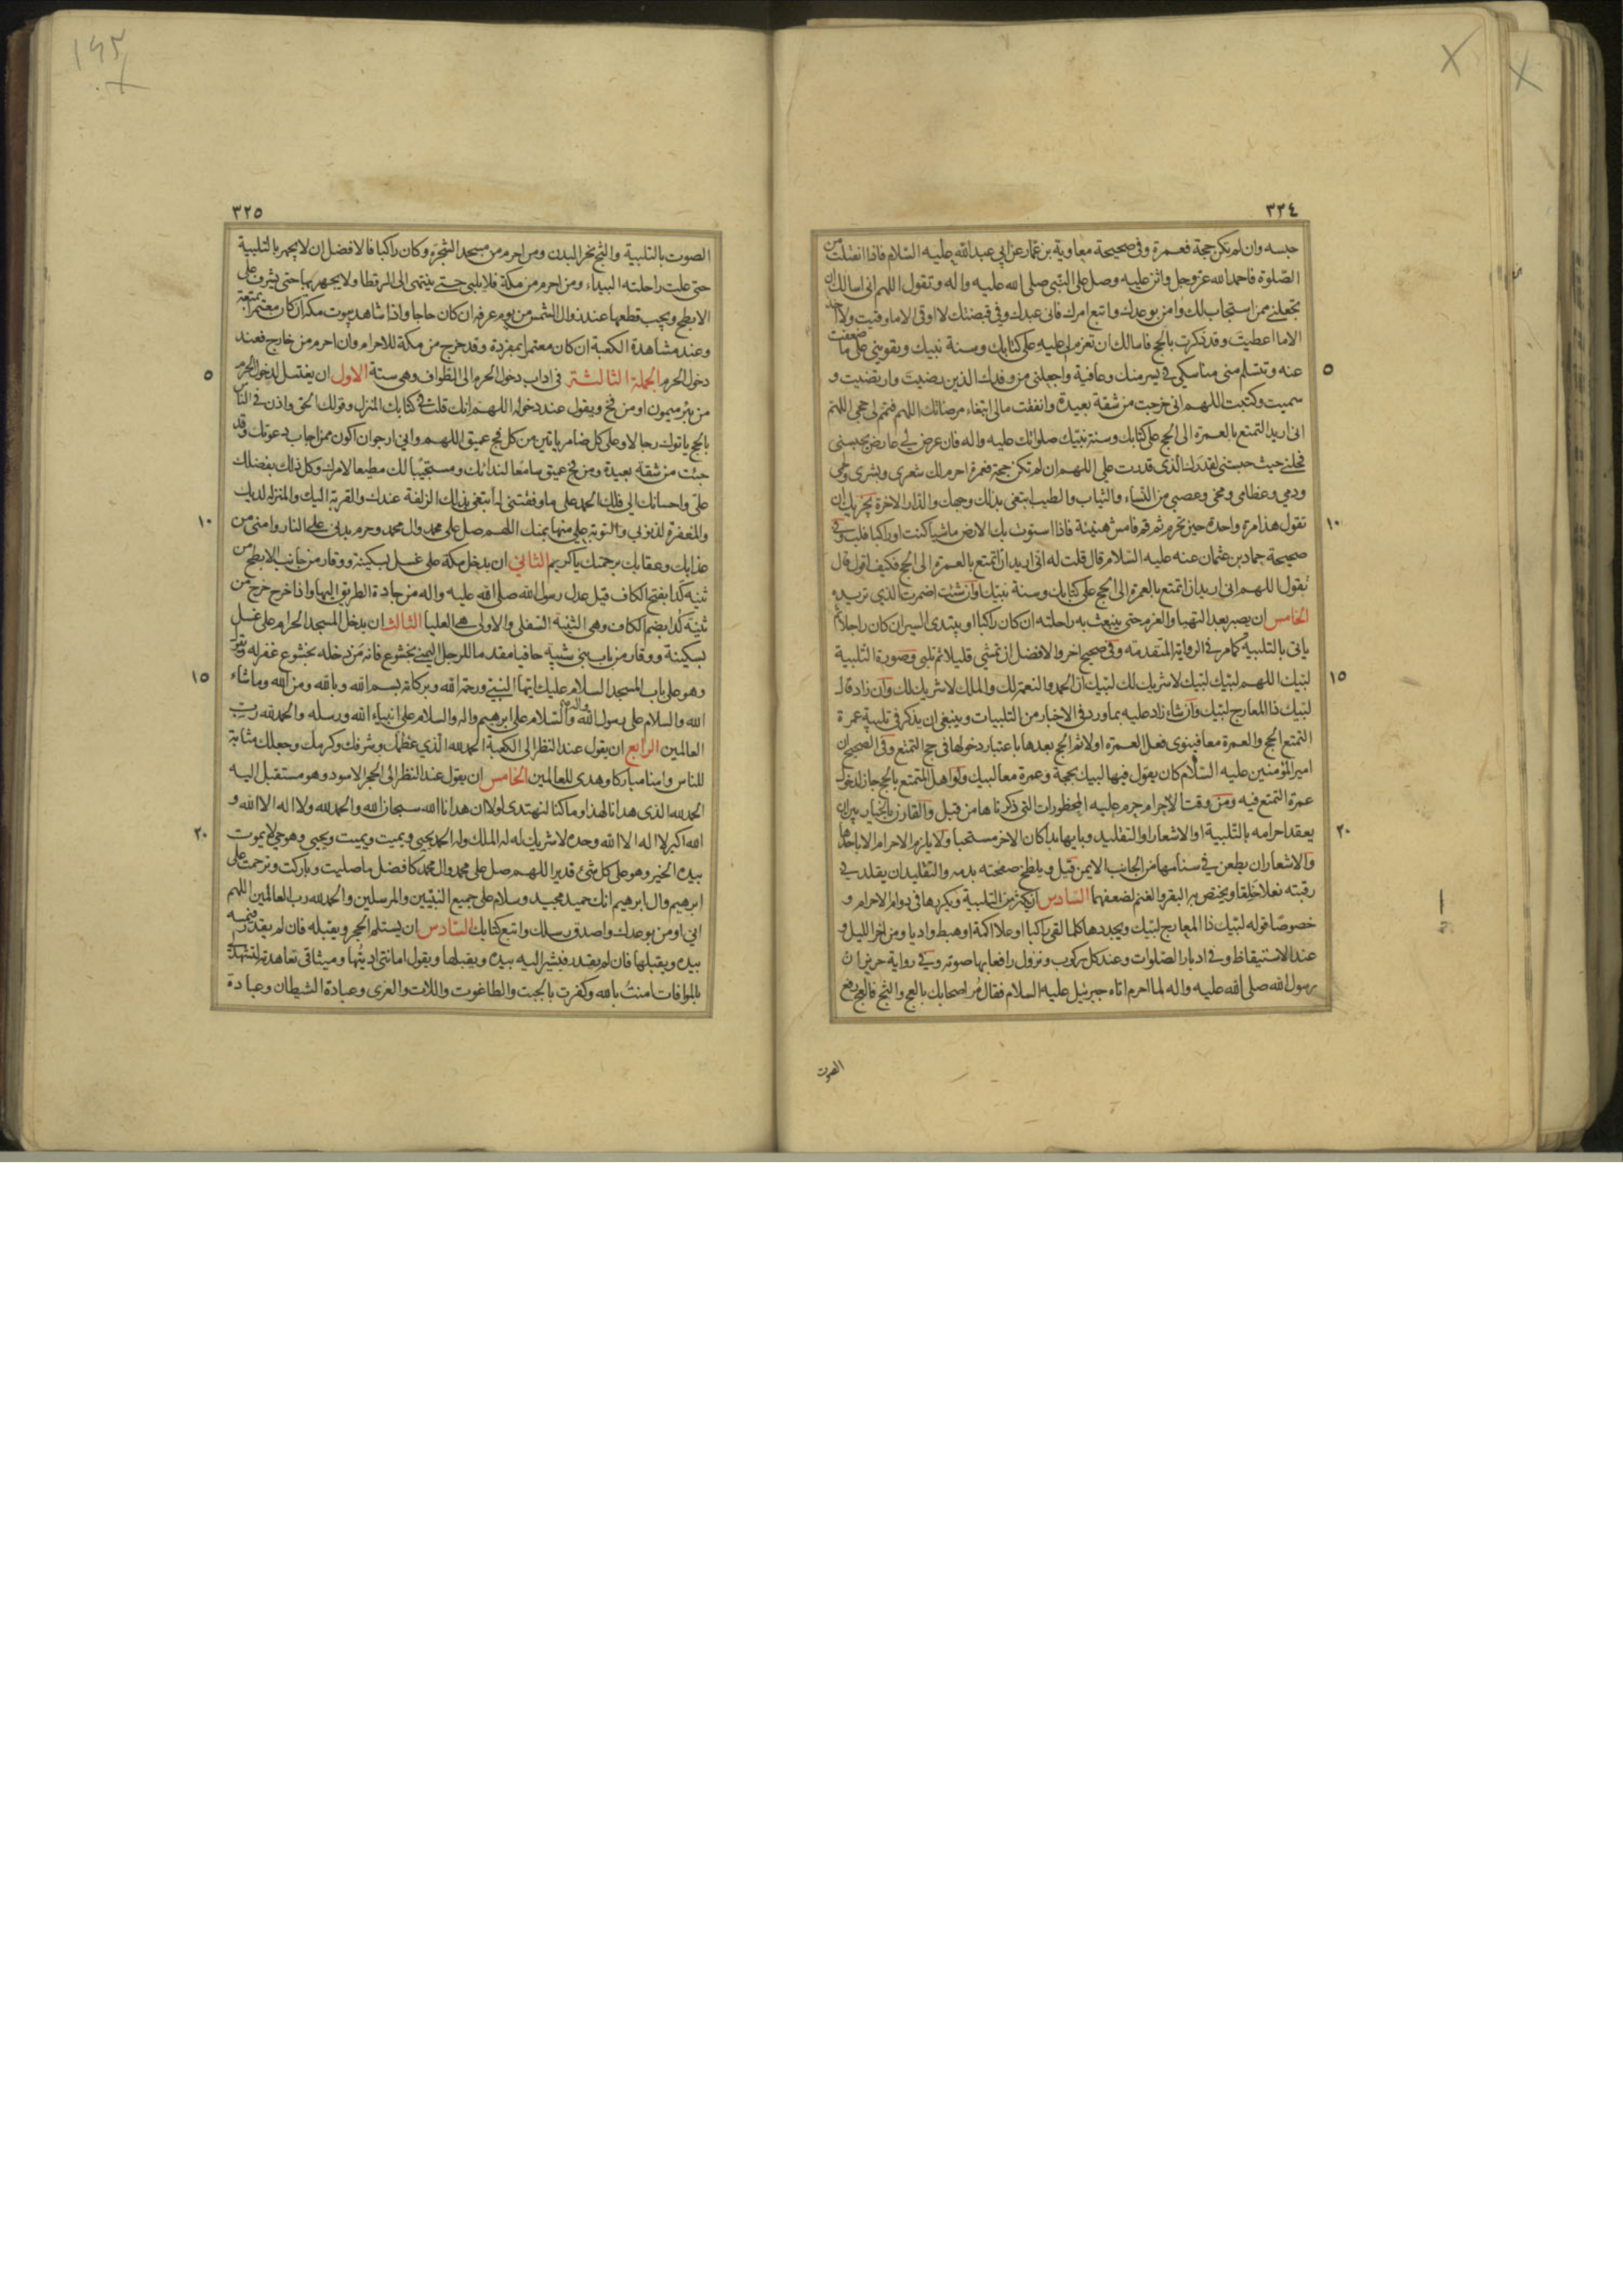 ٣٢٤
حبسه وان لم تكن حجة فعمرة وفي صحيحة معاوية بن عمار عن ابي عبد الله عليه السلام فاذا انفتلت من
الصلوة فاحمد الله عز وجل واثن عليه وصل على النبي صلى الله عليه واله وتقول اللهم اني اسالك ان
تجعلني ممن استجاب لك وامن بوعدك واتبع امرك فاني عبدك وفي قبضتك لا اوقى الا ما وقيت ولا اخذ
الا ما اعطيت وقد ذكرت بالحج فاسالك ان تعزم لي عليه على كتابك وسنة نبيك وتقويني على ما ضعفت
٥
عنه وتسلم مني مناسكي في يسر منك وعافية واجعلني من وفدك الذين رضيت وارتضيت و
سميت وكتبت اللهم اني خرجت من شقة بعيدة وانفقت مالي ابتغاء مرضاتك اللهم فتمم لي حجي اللهم
اني اريد التمتع بالعمرة الى الحج على كتابك وسنة نبيك صلواتك عليه واله فان عرض لي عارض يحبسني
فحلني حيث حبستني لقدرك الذي قدرت علي اللهم ان لم تكن حجة فعمرة احرم لك شعري وبشري ولحمي
ودمي وعظامي ومخي وعصبي من النساء والثياب والطيب ابتغي بذلك وجهك والدار الاخرة يجزيك ان
١٠
تقول هذا مرة واحدة حين تحرم ثم قم فامش هنيئة فاذا استوت بك الارض ماشيا كنت او راكبا فلب وفي
صحيحة حماد بن عثمان عنه عليه السلام قال قلت له اني اريد ان اتمتع بالعمرة الى الحج فكيف اقول قال
تقول اللهم اني اريد ان اتمتع بالعمرة الى الحج على كتابك وسنة نبيك وان شئت اضمرت الذي تريده
الخامس ان يصبر بعد التهيا والعزم حتى ينبعث به راحلته ان كان راكبا او يبتدي السير ان كان راجلا ثم
ياتي بالتلبية كما مر في الرواية المتقدمة وفي صحيح اخر والافضل ان تمشي قليلا ثم تلبي وصورة التلبية
١٥
لبيك اللهم لبيك لبيك لا شريك لك لبيك ان الحمد والنعمة لك والملك لا شريك لك وان زاد قال
لبيك ذا المعارج لبيك وان شاء زاد عليه بما ورد في الاخبار من التلبيات وينبغي ان يذكر في تلبية عمرة
التمتع الحج والعمرة معا فينوي فعل العمرة اولا ثم الحج بعدها باعتبار دخولها في حج التمتع وفي الصحيح ان
امير المؤمنين عليه السلام كان يقول فيها لبيك بحجة وعمرة معا لبيك ولو اهل المتمتع بالحج جاز لدخول
عمرة التمتع فيه ومن وقت الاحرام حرم عليه المحظورات التي ذكرناها من قبل والقارن بالخيار بين ان
٢٠
يعقد احرامه بالتلبية او الاشعار او التقليد وبايها بدا كان الاخر مستحبا ولا يلزم الاحرام الا باحدها
والاشعار ان يطعن في سنامها من الجانب الايمن قيل ويلطخ صفحته بدمه والتقليد ان يقلد في
رقبته نعلا خلقا ويختص به البقر والغنم لضعفهما السادس ان يكثر من التلبية ويكررها في دوام الاحرام و
خصوصا قوله لبيك ذا المعارج لبيك ويجددها كلما لقي راكبا او علا اكمة او هبط واديا ومن اخر الليل و
عند الاستيقاظ وفي ادبار الصلوات وعند كل ركوب ونزول رافعا بها صوته وفي رواية حريز ان
رسول الله صلى الله عليه واله لما احرم اتاه جبرئيل عليه السلام فقال مر اصحابك بالعج والثج فالعج رفع
الصوت
٣٢٥
الصوت بالتلبية والثج نحر البدن ومن احرم من مسجد الشجرة وكان راكبا فالافضل ان لا يجهر بالتلبية
حتى علت راحلته البيداء ومن احرم من مكة فلا يلبي حتى ينتهي الى الرقطا ولا يجهر بها حتى يشرف على
الابطح ويجب قطعها عند زوال الشمس من يوم عرفة ان كان حاجا واذا شاهد بيوت مكة ان كان معتمرا بمتعة
وعند مشاهدة الكعبة ان كان معتمرا بمفردة وقد خرج من مكة للاحرام وان احرم من خارج فعند
٥
دخول الحرم الجملة الثالثة في اداب دخول الحرم الى الطواف وهي ستة الاول ان يغتسل لدخول الحرم
من بئر ميمون او من فخ ويقول عند دخوله اللهم انك قلت في كتابك المنزل وقولك الحق واذن في الناس
بالحج ياتوك رجالا وعلى كل ضامر ياتين من كل فج عميق اللهم واني ارجو ان اكون ممن اجاب دعوتك وقد
جئت من شقة بعيدة ومن فج عميق سامعا لندائك ومستجيبا لك مطيعا لامرك وكل ذلك بفضلك
علي واحسانك الي فلك الحمد على ما وفقتني له ابتغي بذلك الزلفة عندك والقربة اليك والمنزلة لديك
١٠
والمغفرة لذنوبي والتوبة علي منها بمنك اللهم صل على محمد وال محمد وحرم بدني على النار وامني من
عذابك وعقابك برحمتك يا كريم الثاني ان يدخل مكة على غسل بسكينة ووقار من جانب الابطح من
ثنية كدا بفتح الكاف قيل عدل رسول الله صلى الله عليه واله من جادة الطريق اليها واذا خرج خرج من
ثنية كدا بضم الكاف وهي الثنية السفلى والاولى هي العليا الثالث ان يدخل المسجد الحرام على غسل
بسكينة ووقار من باب بني شيبة حافيا مقدما للرجل اليمنى بخشوع فانه من دخله بخشوع غفر له ويقول
١٥
وهو على باب المسجد السلام عليك ايها النبي ورحمة الله وبركاته بسم الله وبالله ومن الله وما شاء
الله والسلام على رسول الله واله والسلام على ابرهيم واله والسلام على انبياء الله ورسله والحمد لله رب
العالمين الرابع ان يقول عند النظر الى الكعبة الحمد لله الذي عظمك وشرفك وكرمك وجعلك مثابة
للناس وامنا مباركا وهدى للعالمين الخامس ان يقول عند النظر الى الحجر الاسود وهو مستقبل اليه
الحمد لله الذي هدانا لهذا وما كنا لنهتدي لولا ان هدانا الله سبحان الله والحمد لله ولا اله الا الله و
٢٠
الله اكبر لا اله الا الله وحده لا شريك له له الملك وله الحمد يحيي ويميت ويميت ويحيي وهو حي لا يموت
بيده الخير وهو على كل شئ قدير اللهم صل على محمد وال محمد كافضل ما صليت وباركت وترحمت على
ابرهيم وال ابرهيم انك حميد مجيد وسلام على جميع النبيين والمرسلين والحمد لله رب العالمين اللهم
اني اومن بوعدك واصدق رسلك واتبع كتابك السادس ان يستلم الحجر ويقبله فان لم يقدر فيمسه
بيده ويقبلها فان لم يقدر فيشير اليه بيده ويقبلها ويقول امانتي اديتها وميثاقي تعاهدته لتشهد لي
بالموافات امنت بالله وكفرت بالجبت والطاغوت واللات والعزى وعبادة الشيطان وعبادة